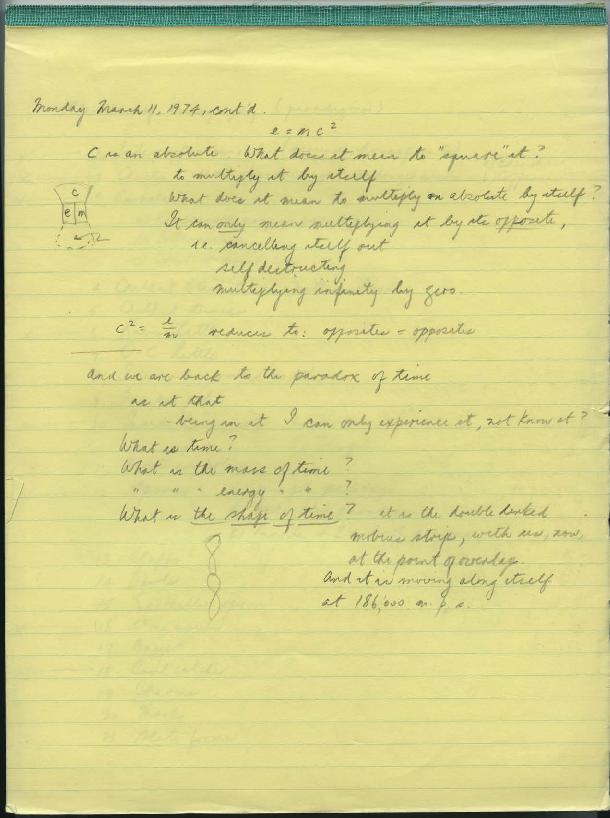 Monday March 11, 1974, cont'd.
e = mc²
C is an absolute. What does it mean to "square" it?
to multiply it by itself
What does it mean to multiply an absolute by itself?
It can only mean multiplying it by its opposite,
i.e. cancelling itself out
self destructing
multiplying infinity by zero.
c
e m
c² = e/m reduces to: opposites = opposites
And we are back to the paradox of time
as it that
being in it I can only experience it, not know it?
What is time?
What is the mass of time?
" " " energy " " ?
What is the shape of time? it is the double linked
mobius strip, with us, now,
at the point of overlap.
And it is moving along itself
at 186,000 m.p.s.